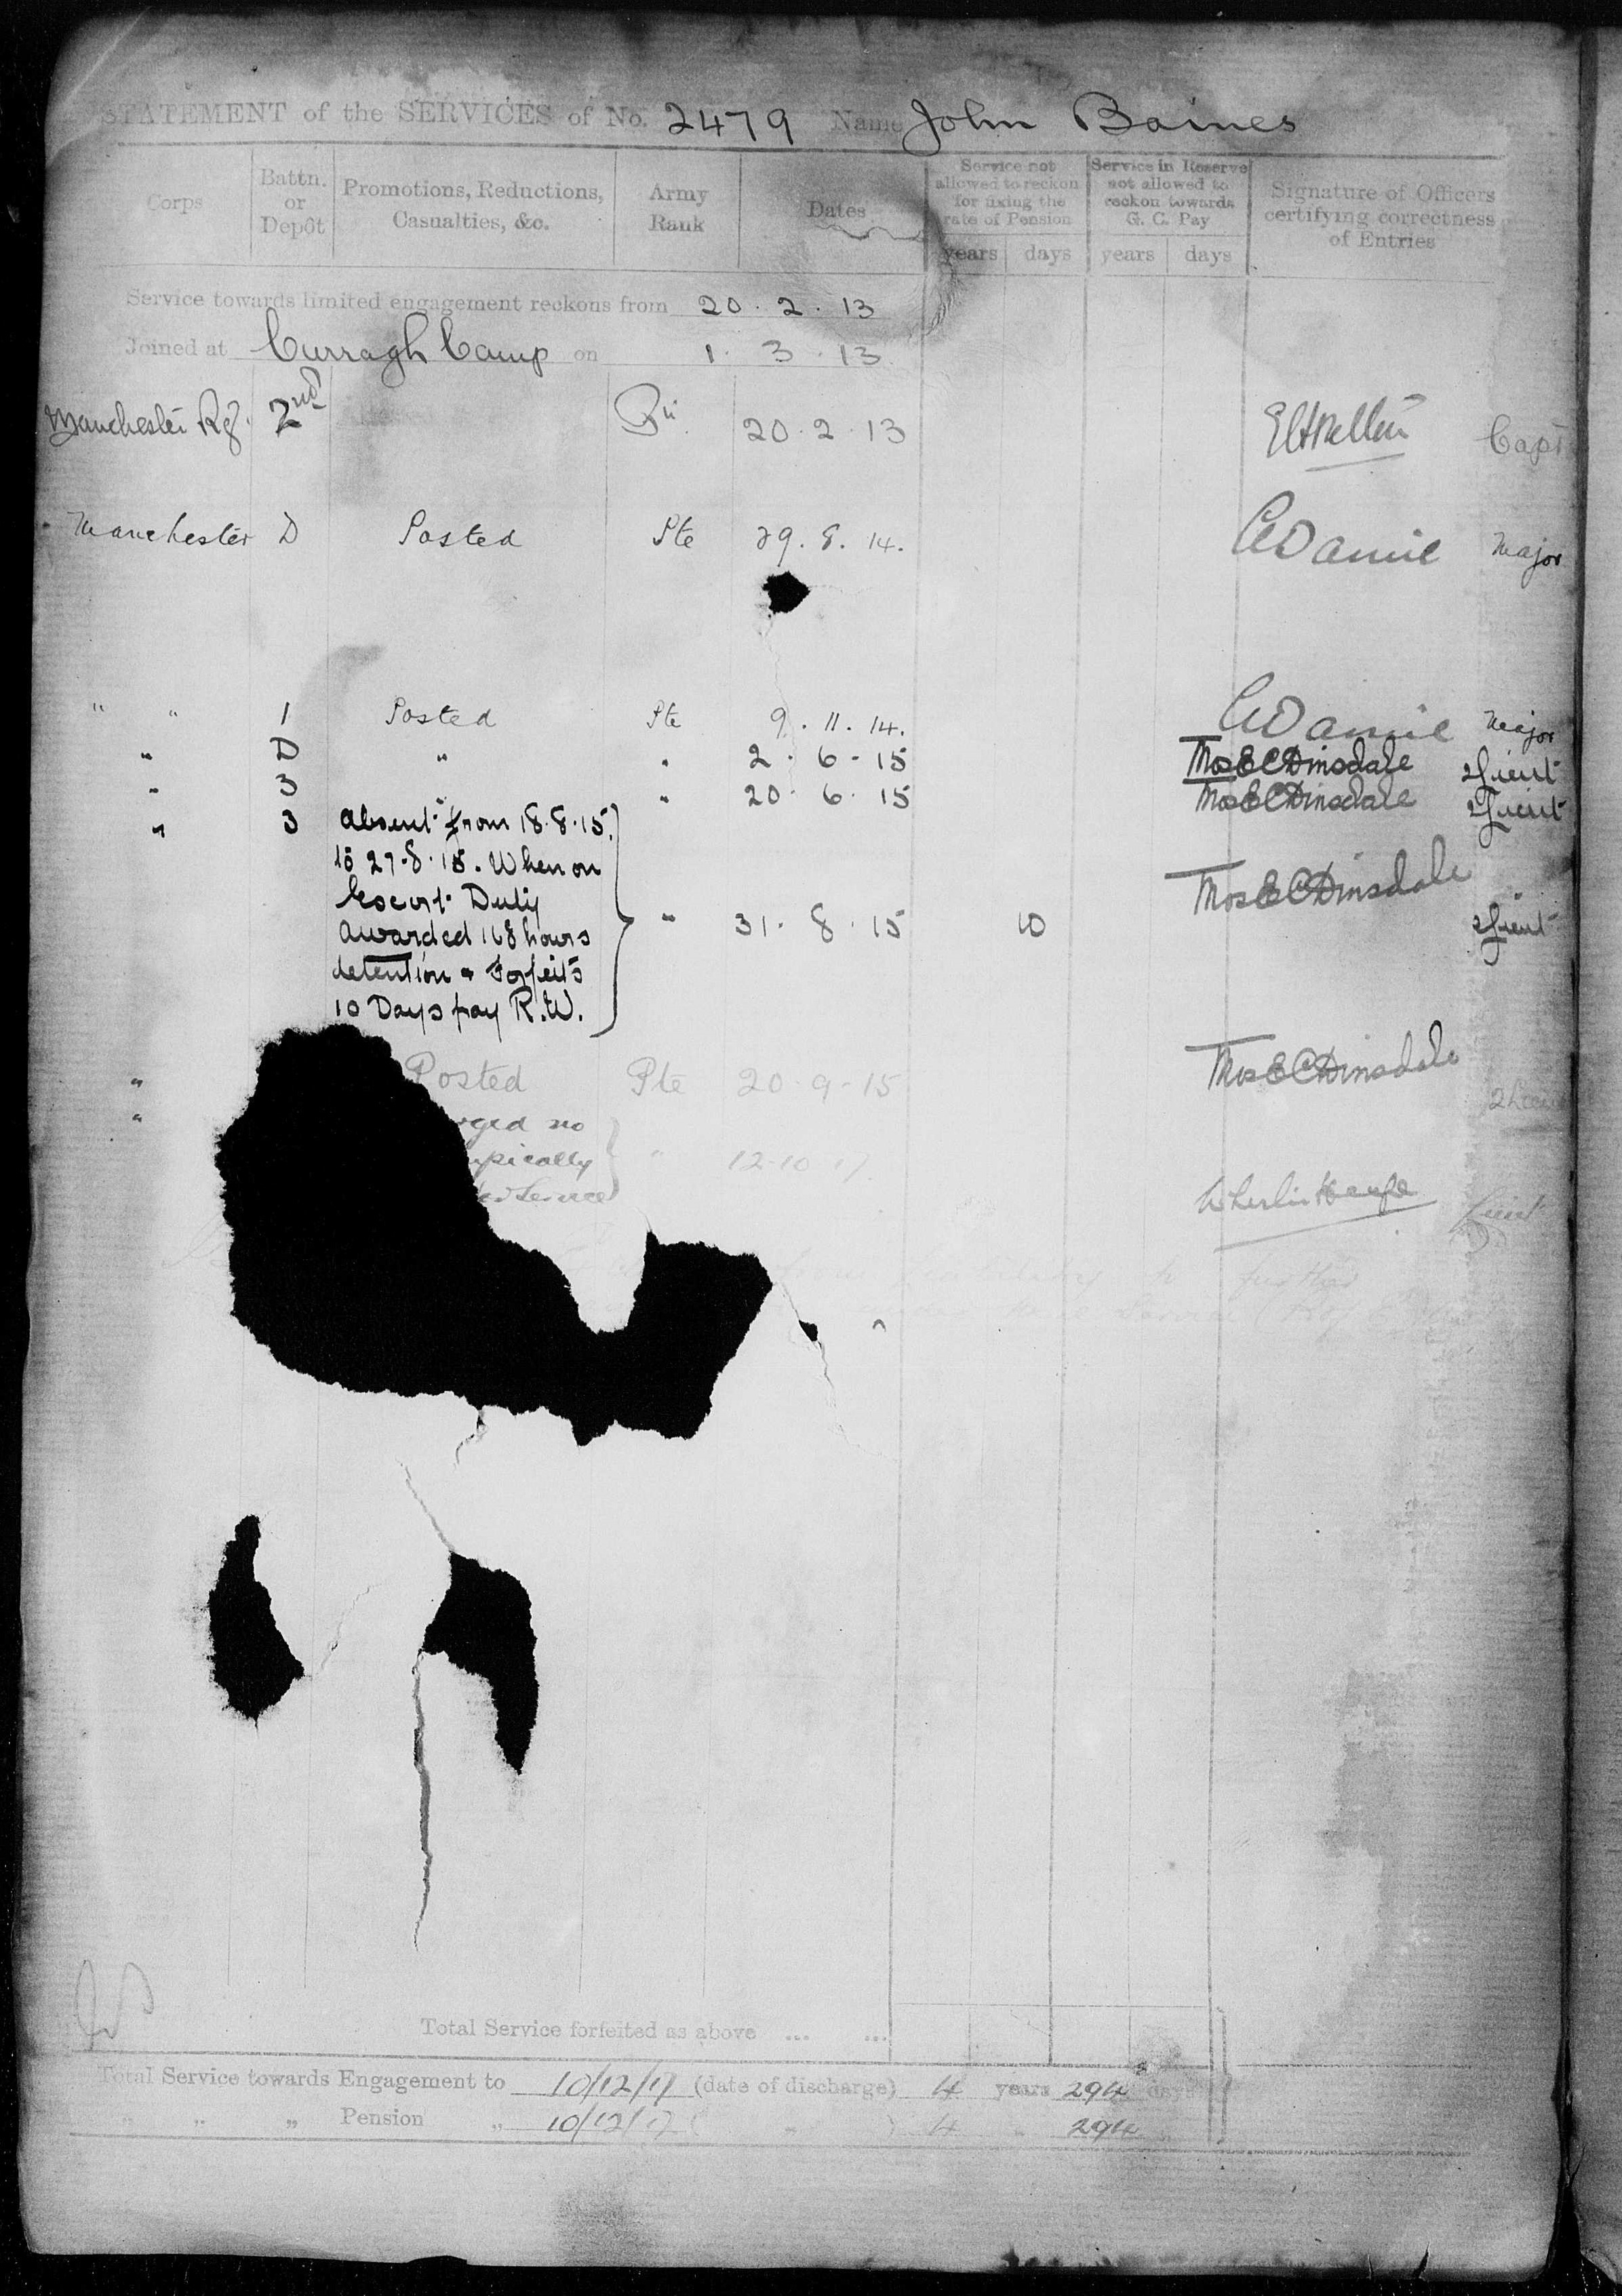 STATEMENT of the SERVICES of No. 2479 Name John Baines
Corps
Battn. or Depôt
Promotions, Reductions, Casualties, &c.
Army Rank
Dates
Service not allowed to reckon for fixing the rate of Pension
years days
Service in Reserve not allowed to reckon towards G. C. Pay
years days
Signature of Officers certifying correctness of Entries
Service towards limited engagement reckons from 20.2.13
Joined at Curragh Camp on 1.3.13
Manchester Rg. 2nd 20.2.13 Capt
Manchester D Posted Pte 29.8.14. Major
" " 1 Posted Pte 9.11.14. Major
" D " " 2-6-15 Thos E C Dinsdale 2Lieut
" 3 " 20.6.15 Thos E C Dinsdale 2Lieut
" 3 Absent from 18.8.15.
to 27.8.15. When on
Escort Duty
Awarded 168 hours " 31.8.15 10 Thos E C Dinsdale 2Lieut
detention & Forfeits
10 Days pay R.W.
" Posted Pte 20-9-15 Thos E C Dinsdale 2Lieut
" rged no
ysically " 12-10-17
Service Lieut
further
Total Service forfeited as above ... ...
Total Service towards Engagement to 10/12/17 (date of discharge) 4 years 294 days
" " " Pension " 10/12/17 ( " ) 4 " 294 "